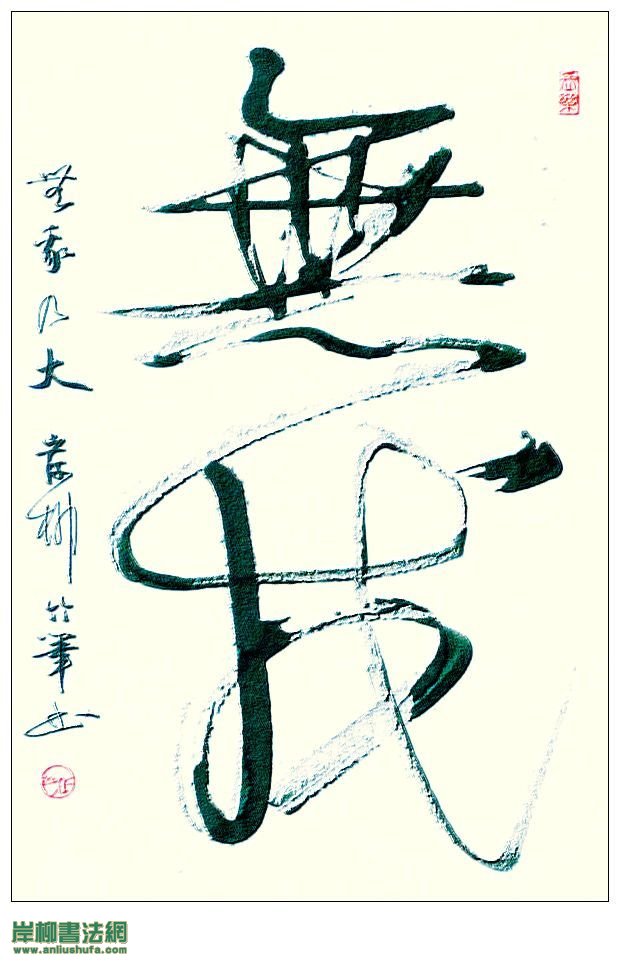 無我
無我乃大 岸柳竹筆书
岸柳書法網
www.anliushufa.com